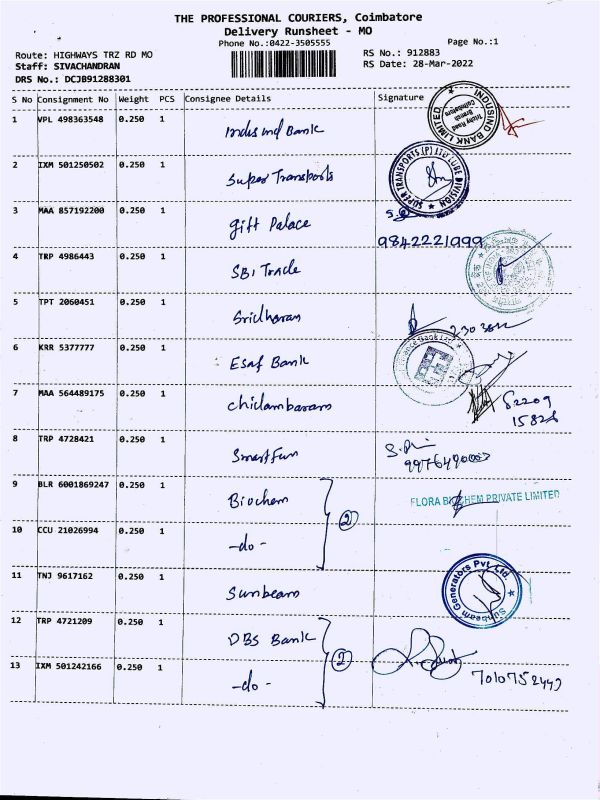 THE PROFESSIONAL COURIERS, Coimbatore
Delivery Runsheet - MO
Phone No.:0422-3505555
Page No.:1
Route: HIGHWAYS TRZ RD MO
RS No.: 912883
Staff: SIVACHANDRAN
RS Date: 28-Mar-2022
DRS No.: DCJB91288301
S No Consignment No Weight PCS Consignee Details Signature
1 VPL 498363548 0.250 1 Indus ind Bank
INDUSIND BANK LIMITED
Trichy Road Branch Coimbatore
2 IXM 501250502 0.250 1 Super Transports
SUPER TRANSPORTS (P) LTD LUBE DIVISION
3 MAA 857192200 0.250 1 gift Palace
9842221999
4 TRP 4986443 0.250 1 SBI Trade
5 TPT 2060451 0.250 1 Sridharan
6 KRR 5377777 0.250 1 Esaf Bank
Finance Bank Ltd
7 MAA 564489175 0.250 1 Chidambaram
82209
15828
8 TRP 4728421 0.250 1 Smart Fun
9 BLR 6001869247 0.250 1 Biochem
2
FLORA BIOCHEM PRIVATE LIMITED
10 CCU 21026994 0.250 1 -do-
11 TNJ 9617162 0.250 1 Sunbeam
Sunbeam Generators Pvt Ltd.
12 TRP 4721209 0.250 1 DBS Bank
2
13 IXM 501242166 0.250 1 -do-